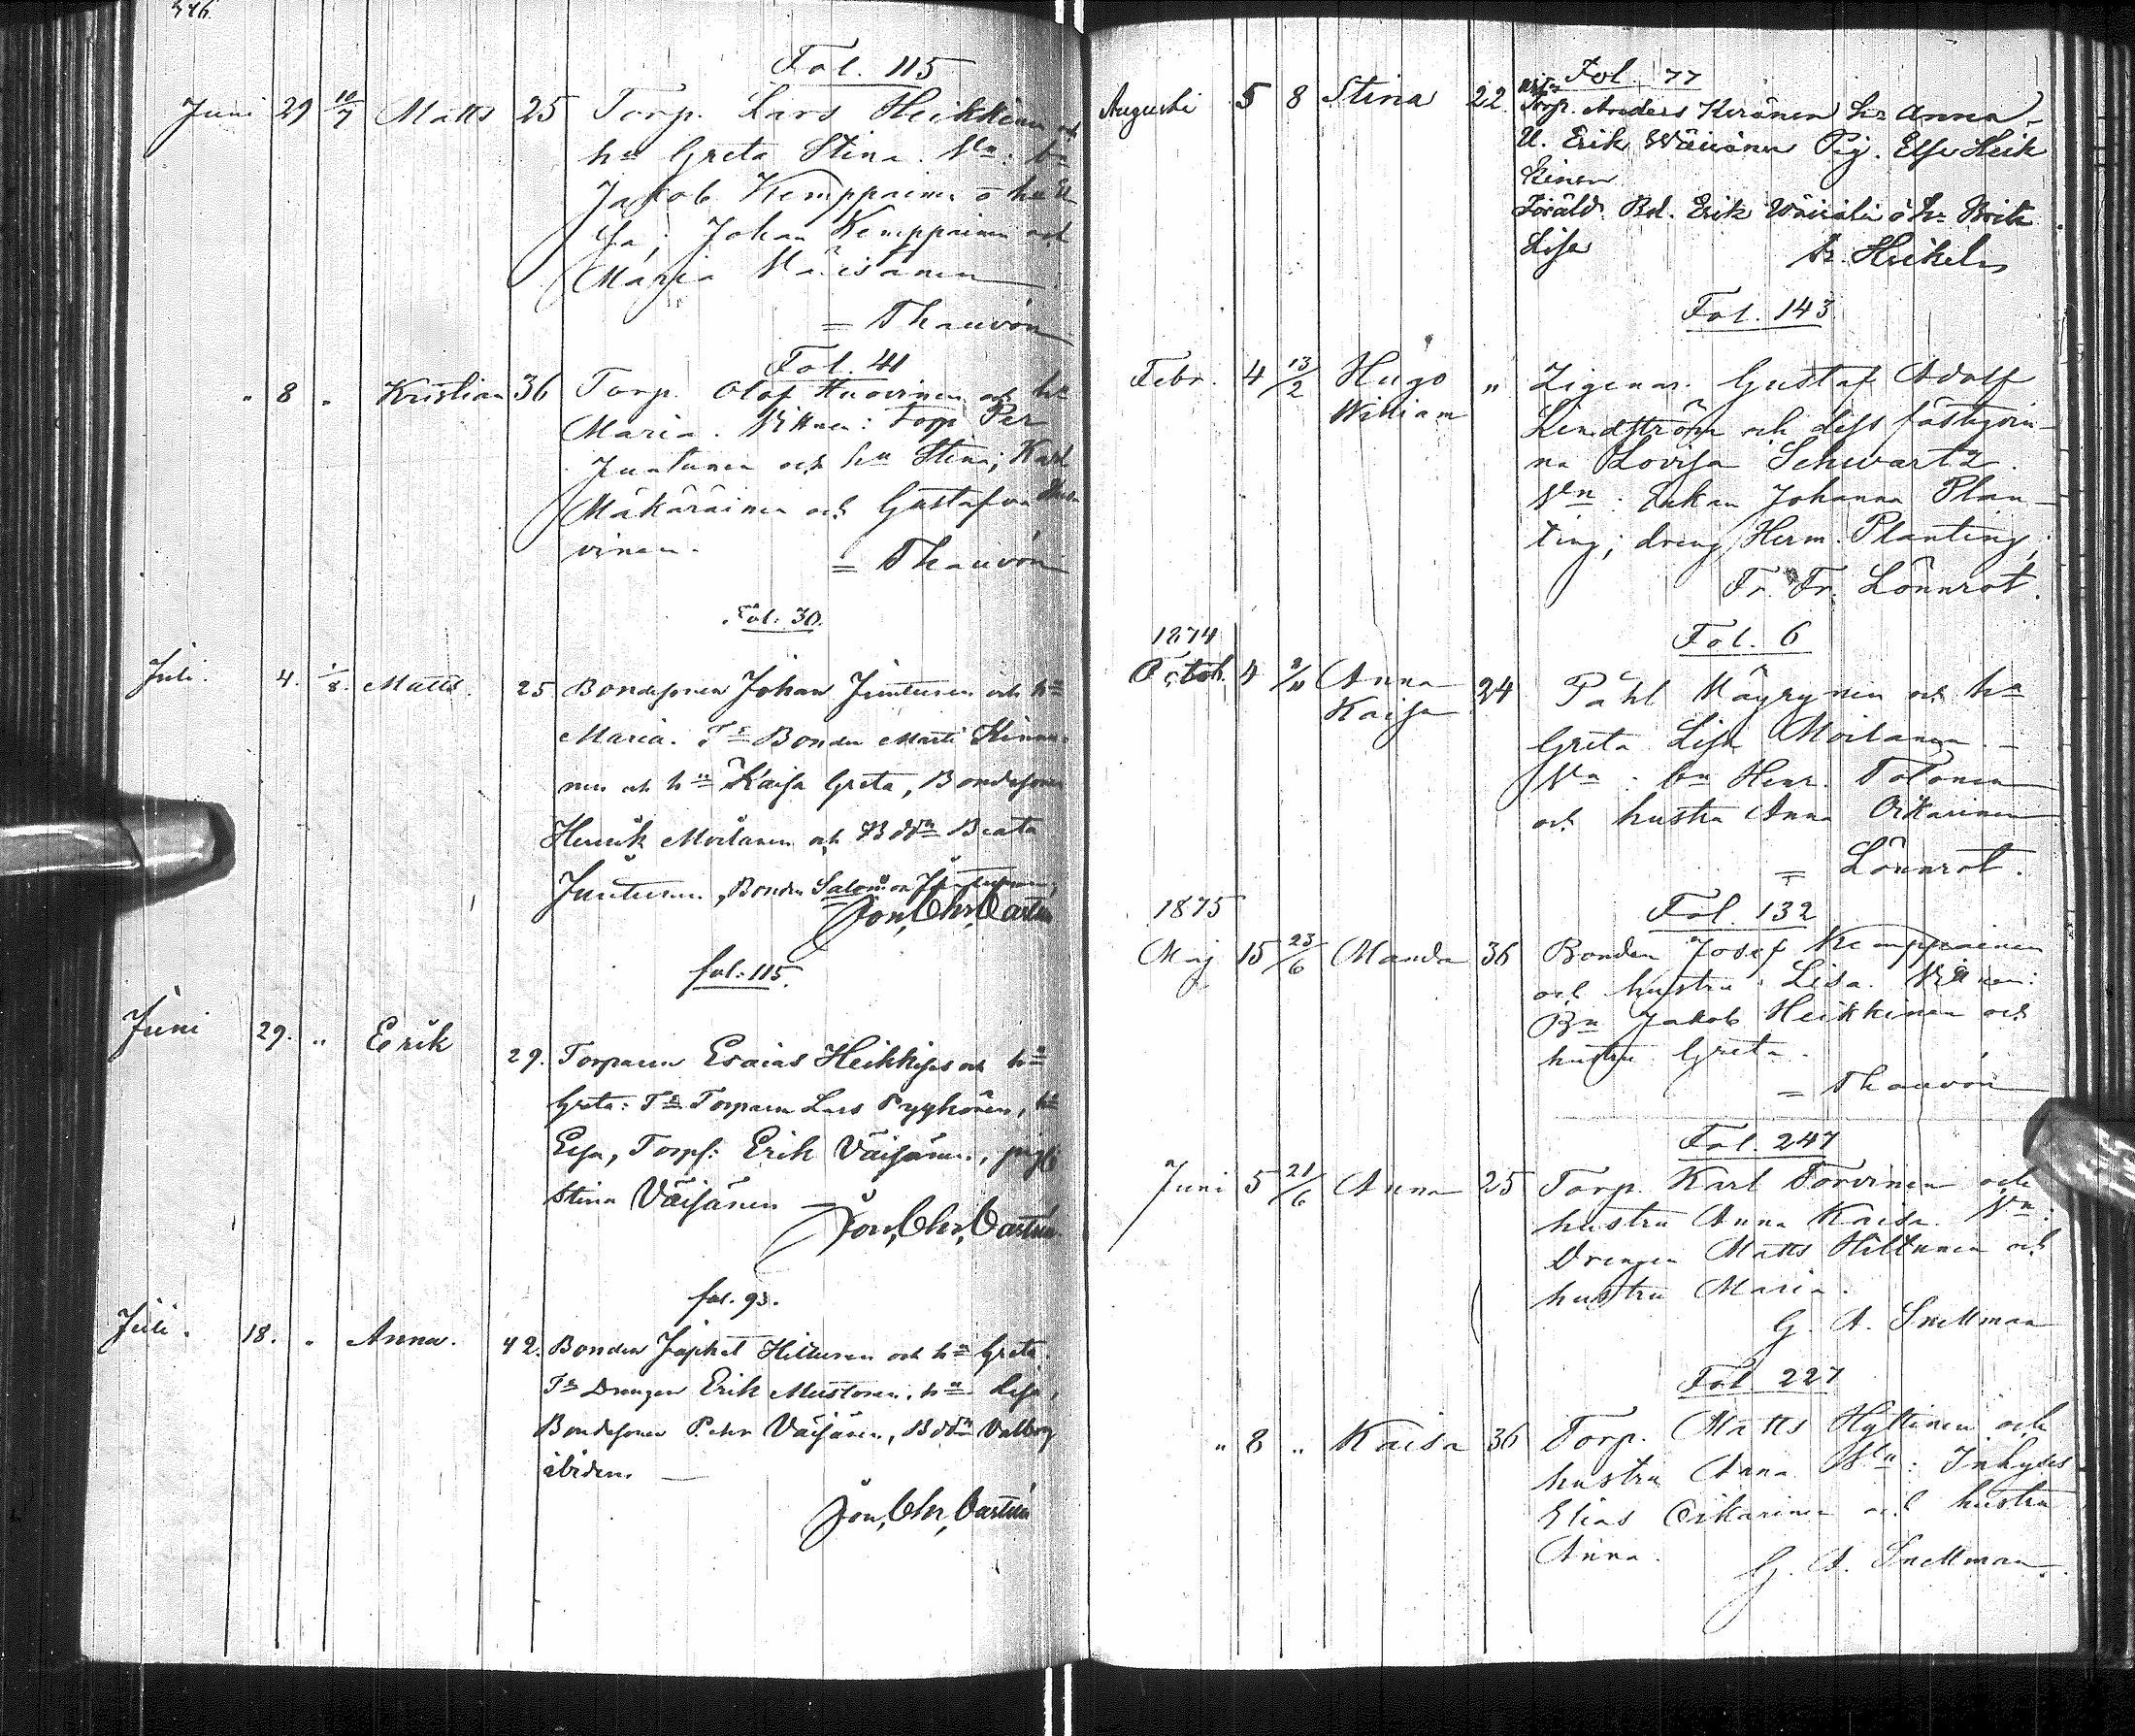 376.
Fol. 115
Juni 29 10/7 Matts 25 Torp. Lars Heikkinen och
hu Greta Stina. Vtn: bn
Jakob Kemppainen o hu El
sa; Johan Kemppainen och
Maria Väisänen
= Thauvón
Fol. 41
" 8 " Kristian 36 Torp. Olof Huovinen och hu
Maria. Vittnen: Torp Per
Juntunen och hu Stina; Karl
Mäkäräinen och Gustafva Huo
vinen.
= Thauvón
Fol: 30.
Juli. 4. 1/8. Matts. 25 Bondesonen Johan Juntunen och hu
Maria. Bonden Matti Kinnu-
nen och hu Kaisa Greta, Bondesonen
Henrik Moilanen och Beata
Juntunen, Bonden Salomon Juntunen,
Jon, Chr, Castrén
fol: 115.
Juni 29. " Erik 29. Torparen Esaias Heikkinen och hu
Greta: Torparen Lars Pyykönen, hu
Elsa, Torps: Erik Väisänen, pig:
Stina Väisänen
Jon, Chr, Castrén
fol. 93.
Juli. 18. " Anna. 42. Bonden Japhet Hiltunen och hu Greta.
Drengen Erik Mustonen, hu Lisa,
Bondesonen Pehr Väisänen, Valborg
ibidem.
Jon, Chr, Castrén
Fol. 77
Augusti 5 8 Stina 22 Torp. Anders Keränen hu Anna
U. Erik Väisänen Pig. Elsa Heik
kinen
Föräld. Bd. Erik o hu Brita
Lisa
Heikel
Fol. 143
Febr. 4 13/2 Hugo " Zigenar. Gustaf Adolf
William Lindström och dess fästqvin-
na Lovisa Schwartz.
Vtn: Enkan Johanna Plan-
ting; dreng Herm. Planting.
Fr. Fr. Lönnrot.
1874
Fol. 6
Octob. 4 Anna 24 Påhl Mäyrynen och hu
Kaisa Greta Lisa Moilanen.
Vtn: bn Henr. Tolonen
och hustru Anna Oikarinen
= Lönnrot.
1875
Fol. 132
Maj 15 23/6 Manda 36 Bonden Josef Kemppainen
och hustru Lisa. Vittnen:
Bn Jakob Heikkinen och
hustru Greta.
= Thauvón
Fol. 247
Juni 5 21/6 Anna 25 Torp. Karl Torvinen och
hustru Anna Kaisa. Vtn:
Drengen Matts Hiltunen och
hustru Maria.
G. A. Snellman
Fol 227
" 8 " Kaisa 36 Torp. Matts Hyttinen och
hustru Anna Vtn: Inhyses
Elias Oikarinen och hustru
Anna.
G. A. Snellman.